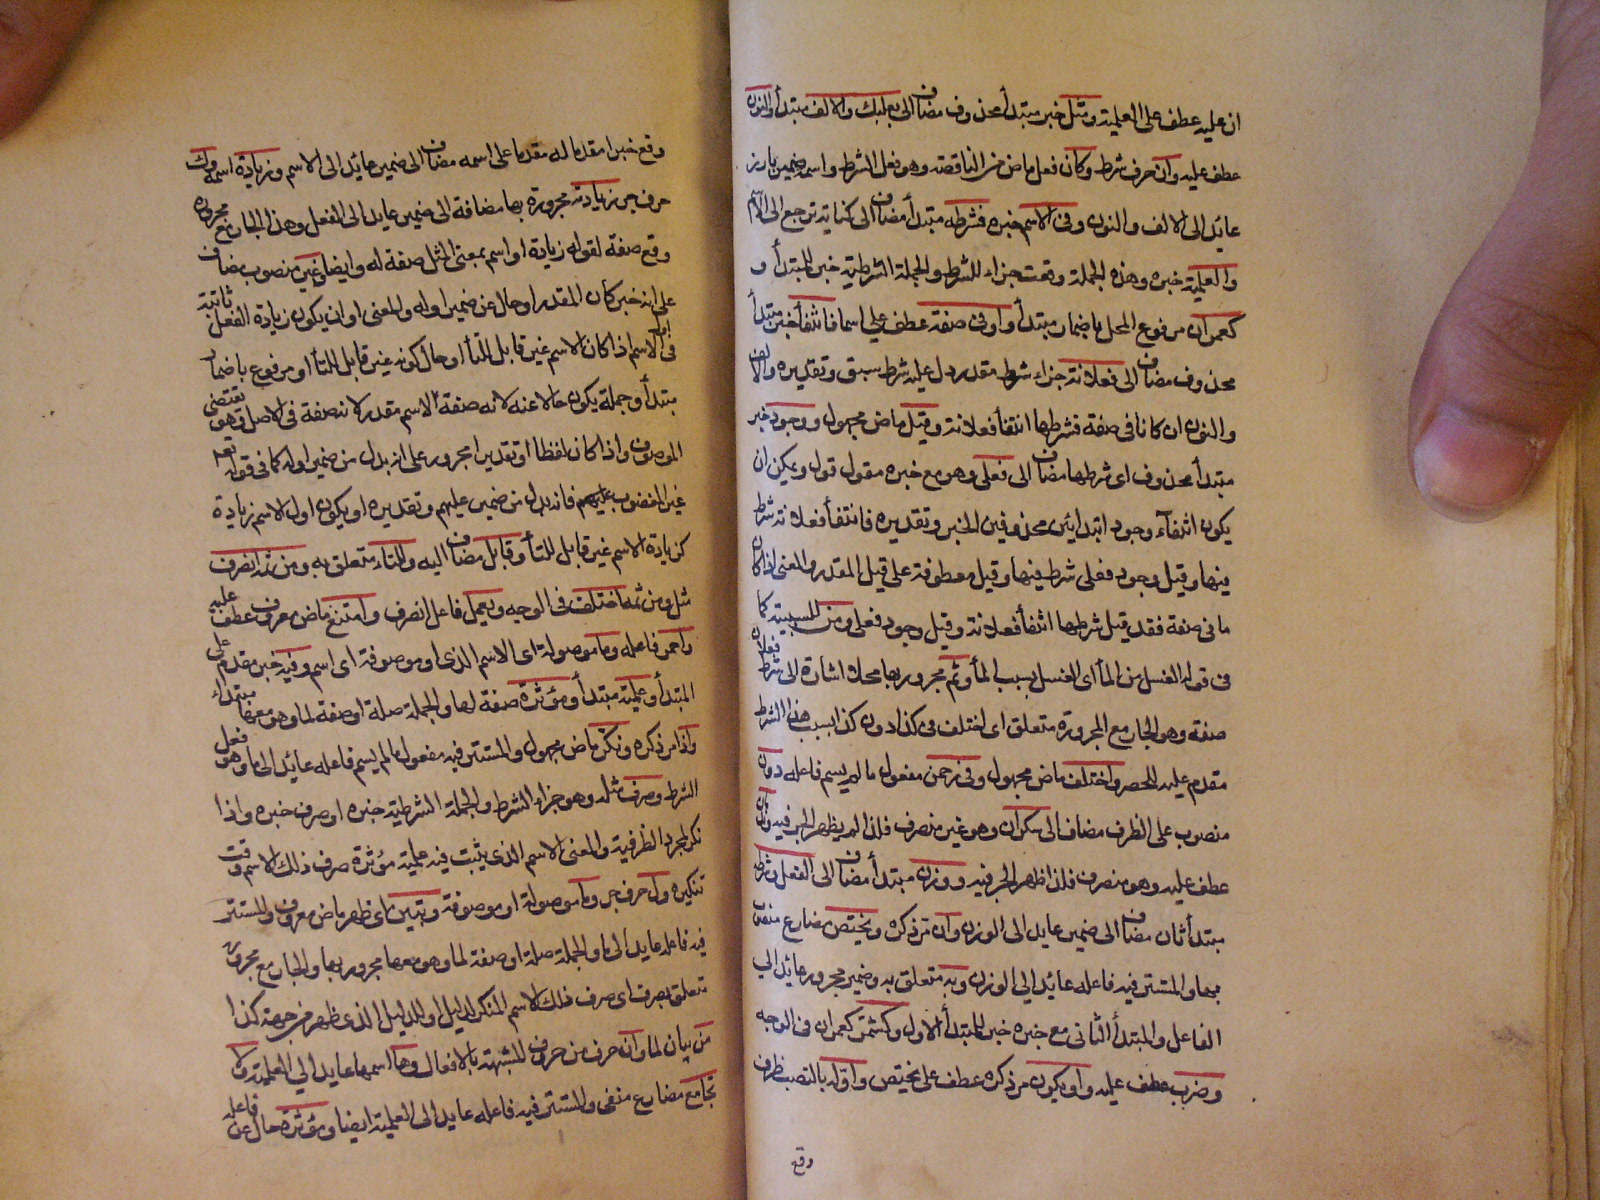 ان عليه عطف على العلمية ومثل خبر مبتدأ محذوف مضاف الى بعلبك والالف مبتدأ والنون
عطف عليه وان حرف شرط وكان فعل ماض من الناقصة وهو فعل الشرط واسمه ضمير بارز
عائد الى الالف والنون وفى الاسم خبره فشرطه مبتدأ مضاف الى كناية ترجع الى الاسم
والعلمية خبره وهذه الجملة وقعت جزاء للشرط والجملة الشرطية خبر المبتدأ و
كعمران مرفوع المحل باضمار مبتدأ واو فى صفة عطف على اسما فانتفأ خبر مبتدأ
محذوف مضاف الى فعلانة جزاء شرط مقدر دل عليه شرط سبق وتقديره والالف
والنون ان كانا فى صفة فشرطها انتفأ فعلانة وقيل ماض مجهول ووجود خبر
مبتدأ محذوف اى شرطها مضاف الى فعلى وهو مع خبره مقول قول ويمكن ان
يكون انتفآء وجود ابتدائين محذوفين الخبر وتقديره فانتفأ فعلانة شرط
فيها وقيل وجود فعلى شرط فيها وقيل معطوفة على قيل المقدر والمعنى اذا كان
ما فى صفة فقد قيل شرطها انتفأ فعلانة وقيل وجود فعلى ومن للسببية كما
فى قوله الغسل من المأ اى الغسل بسبب المأ وثم مجرور بها محلا اشارة الى شرط فعلان
صفة وهو الجار مع المجرورة متعلق اى اختلف فى كذا دون كذا بسبب هذا الشرط
مقدم عليه للحصر واختلف ماض مجهول وفى رحمن مفعول ما لم يسم فاعله دون
منصوب على الظرف مضاف الى سكران وهو غير منصرف فلذا لم يظهر الجر فيه وندمان
عطف عليه وهو منصرف فلذا ظهر الجر فيه ووزن مبتدأ مضاف الى الفعل وشرطه
مبتدأ ثان مضاف الى ضمير عايد الى الوزن وان مر ذكره ويختص مضارع منصوب
بها والمستتر فيه فاعله عائد الى الوزن وبه متعلق به وضمير مجرور عائد الى
الفاعل والمبتدأ الثانى مع خبره خبر للمبتدأ الاول وكشمر كعمران فى الوجه
وضرب عطف عليه واو يكون مر ذكره عطف على يختص واوله بالنصب ظرف
وقع
وقع خبرا مقدما له مقدما على اسمه مضاف الى ضمير عايد الى الاسم وزيادة اسمه وك
حرف جر زيادته مجرورة بها مضافة الى ضمير عايد الى الفعل وهذا الجار مع مجروره
وقع صفة لقوله زيادة او اسم بمعنى المثل صفة له وايضا غير منصوب مضاف
على انه خبر كان المقدر او حال عن ضمير اوله والمعنى او ان يكون زيادة الفعل ثابتة
فى اول الاسم اذا كان الاسم غير قابل للتأ او حال كونه غير قابل للتأ او مرفوع باضمار
مبتدأ وجملة يكون حالا عنه لانه صفة الاسم مقدر لانه صفة فى الاصل وهو تقتضى
الموصوف واذا كان لفظا او تقديرا مجرور على انه بدل من ضمير اوله كما فى قوله تعم
غير المغضوب عليهم فانه بدل من ضمير عليهم وتقديره او يكون اول الاسم زيادة
كزيادة الاسم غير قابل للتأ وقابل مضاف اليه وللتاء متعلق به ومن ثم انصرف
مثل ومن ثمه اختلف فى الوجه ويعمل فاعل انصرف وامتنع ماض معروف عطف عليه
واحمر فاعله وما موصولة اى الاسم الذى او موصوفة اى اسم وفيه خبر مقدم على
المبتدأ وعلمية مبتدأ ومؤثرة صفة لها والجملة صلة او صفة لما وهو معها مبتداء
واذا مر ذكره ونكر ماض مجهول والمستتر فيه مفعول ما لم يسم فاعله عائد الى ما وهو فعل
الشرط وصرف مثله وهو جزاء الشرط والجملة الشرطية خبره او صرف خبره واذا
نكر لمجرد الظرفية والمعنى الاسم الذى يثبت فيه علمية مؤثرة صرف ذلك الاسم وقت
تنكيره ول حرف جر وما موصولة او موصوفة وتبين اى ظهر ماض معروف والمستتر
فيه فاعله عايد الى ما والجملة صلة او صفة لما وهو معها مجرور بها والجار مع مجروره
متعلق بصرف اى صرف ذلك الاسم المنكر لدليل او للدليل الذى ظهر من جهة كذا
من بيان لما وان حرف من حروف المشبهة بالافعال وها اسمها عايد الى العلمية ولا
تجامع مضارع منفى والمستتر فيه فاعله عايد الى العلمية ايضا ومؤثرة حال عن فاعله